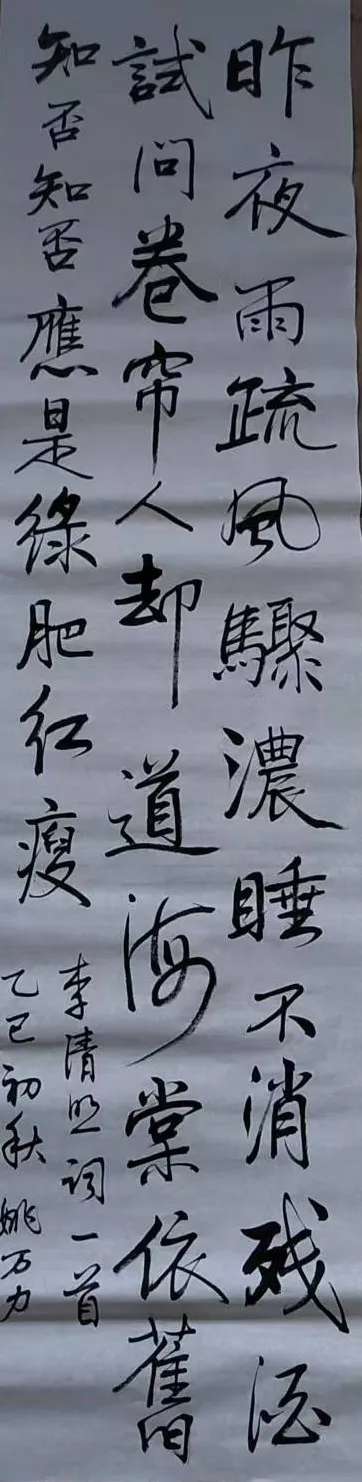 昨夜雨疏風驟濃睡不消残酒
試問卷帘人却道海棠依舊
知否知否應是綠肥红瘦
李清照词一首
乙巳初秋姚万力